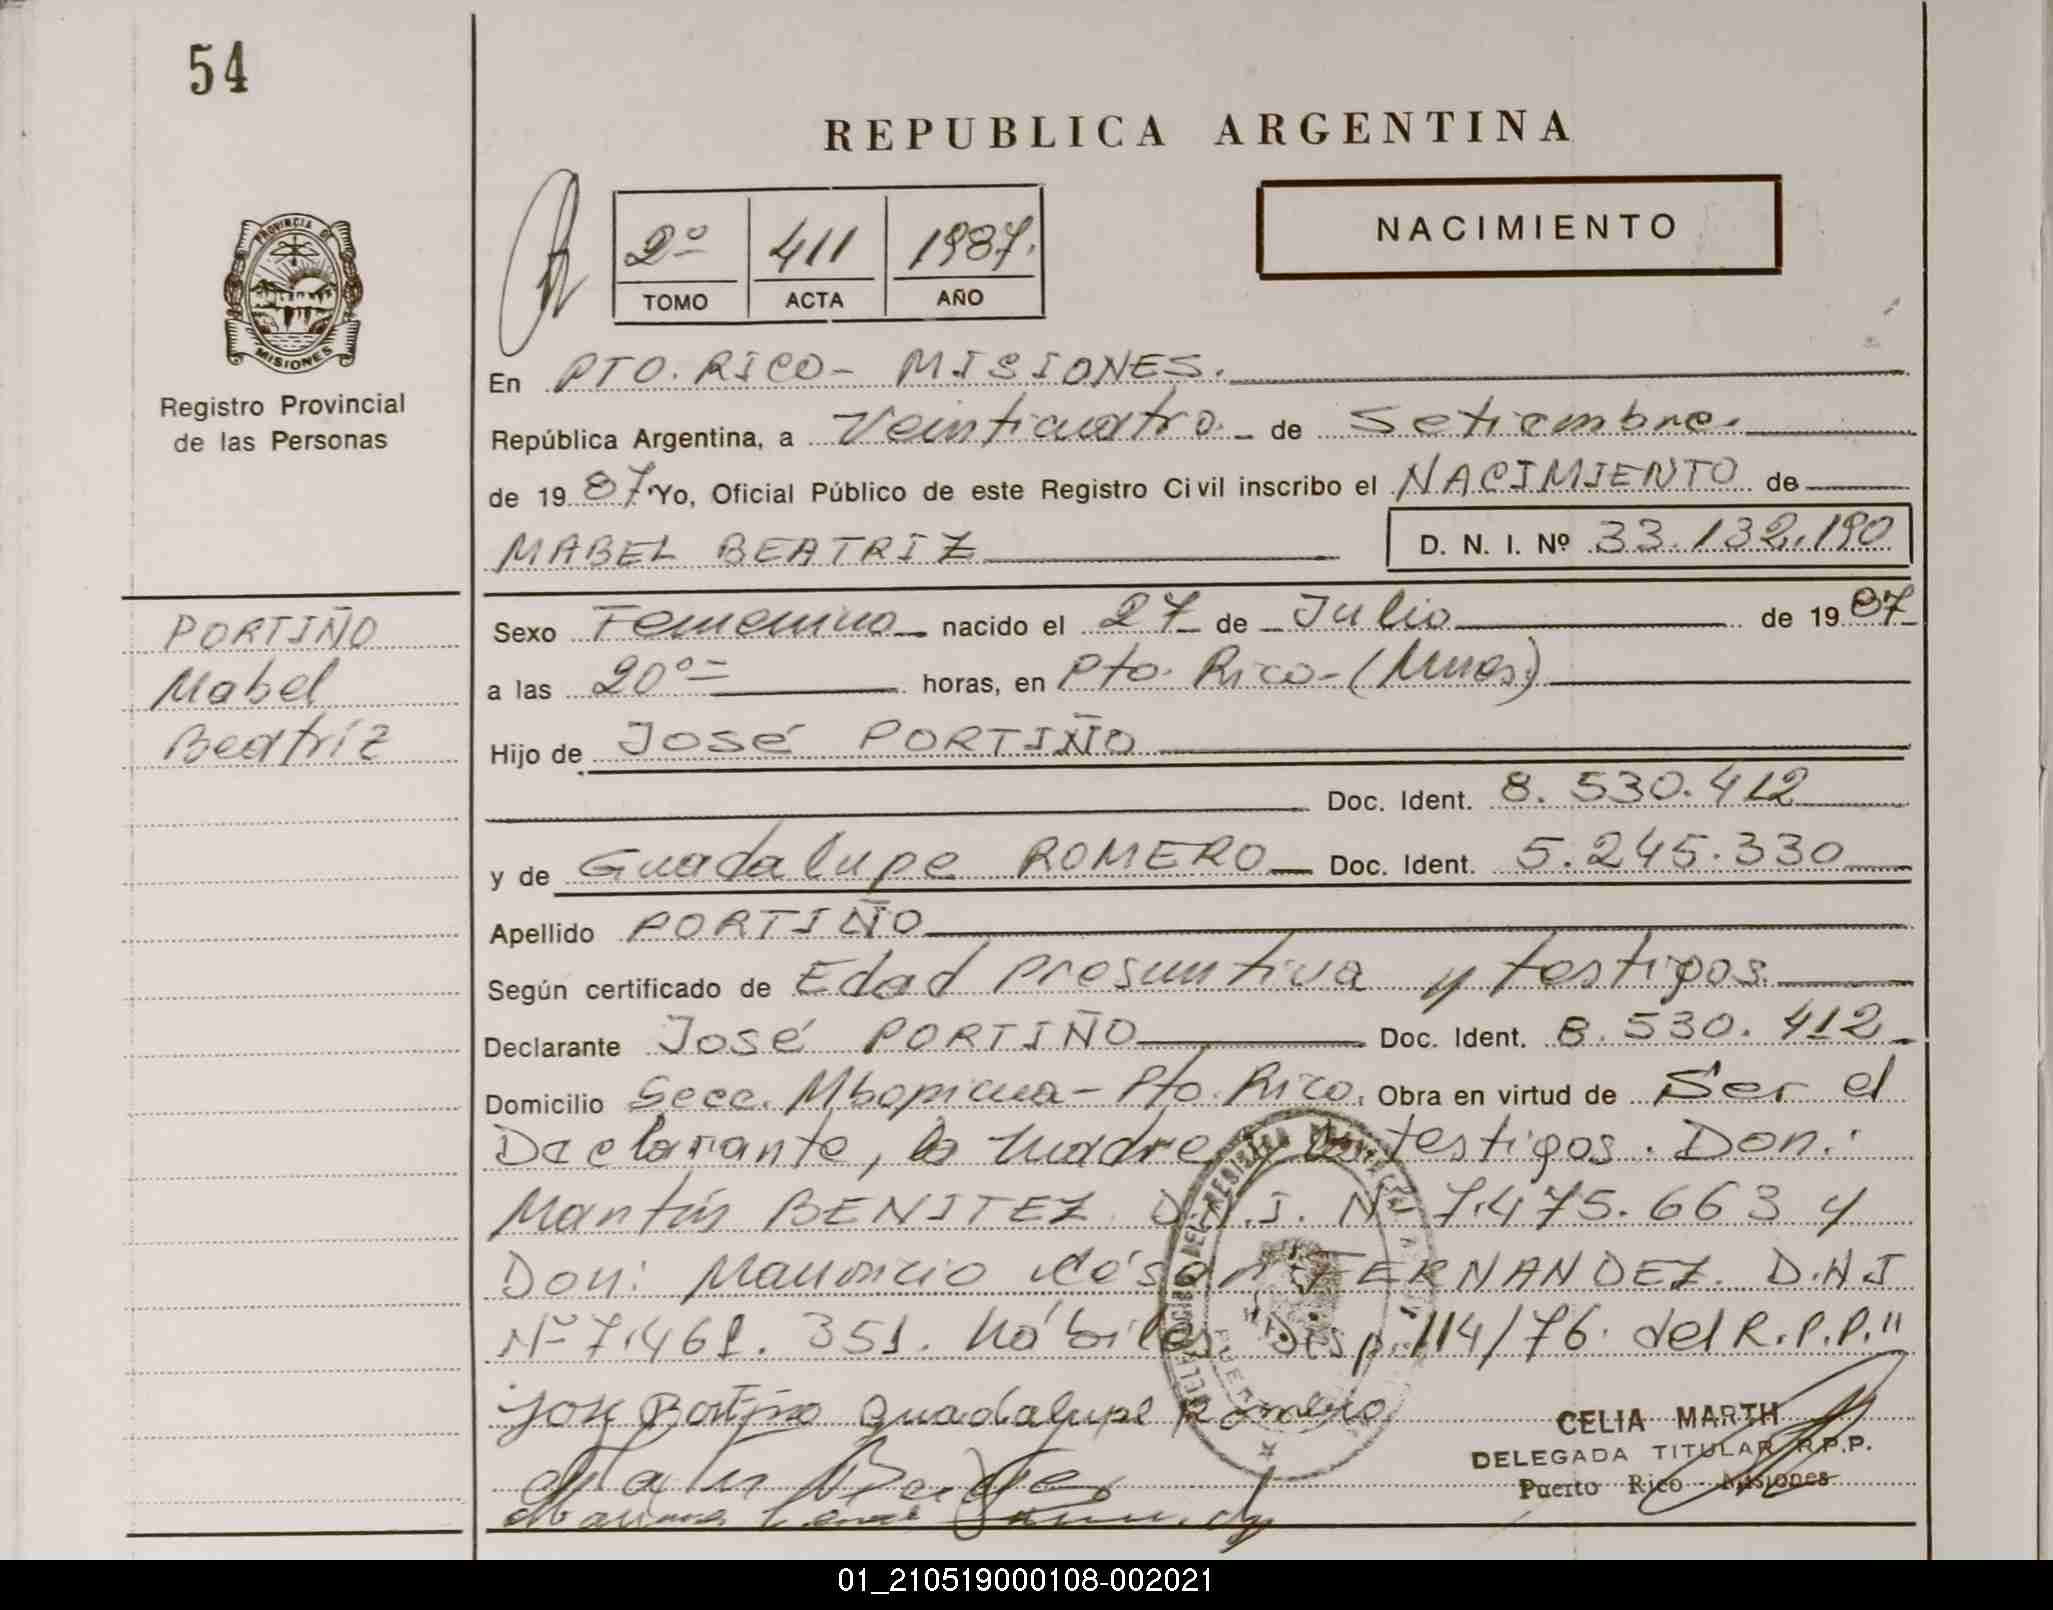 54
REPUBLICA ARGENTINA
2º 411 1987.
TOMO ACTA AÑO
NACIMIENTO
PROVINCIA DE
MISIONES
Registro Provincial
de las Personas
En PTO. RICO- MISIONES.
República Argentina, a Veinticuatro. de Setiembre.
de 1987. Yo, Oficial Público de este Registro Civil inscribo el NACIMIENTO de
MABEL BEATRIZ D. N. I. Nº 33.132.190
PORTIÑO
Mabel
Beatríz
Sexo Femenino nacido el 27 de Julio de 1987
a las 20º= horas, en Pto. Rico-(Mnes.)
Hijo de José PORTIÑO
Doc. Ident. 8.530.412
y de Guadalupe ROMERO Doc. Ident. 5.245.330
Apellido PORTIÑO
Según certificado de Edad presuntiva y testigos.
Declarante José PORTIÑO Doc. Ident. 8.530.412
Domicilio Secc. Mbopicua- Pto. Rico. Obra en virtud de Ser el
Declarante, la madre y los testigos. Don:
BENITEZ D.N.I. Nº 7.475.663 y
Don: Mauricio César FERNANDEZ. D.N.I
Nº 7.461.351. hábiles Disp. 114/76. del R.P.P."
José Portiño Guadalupe Romero
CELIA MARTH
DELEGADA TITULAR R.P.P.
Puerto Rico Misiones
01_210519000108-002021